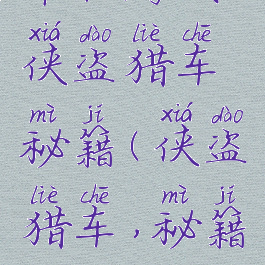 xiá dào liè chē
侠盗猎车
mì jí xiá dào
秘籍(侠盗
liè chē mì jí
猎车,秘籍